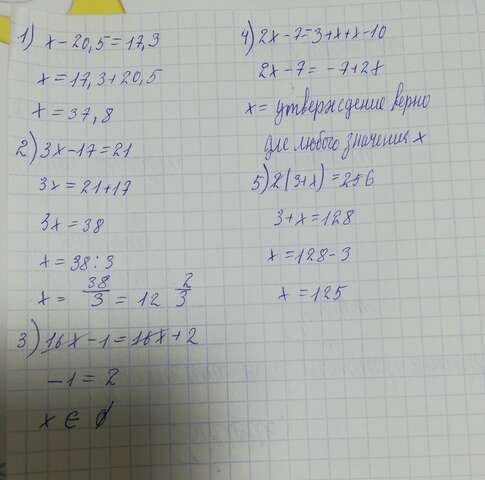 1) x - 20,5 = 17,3
x = 17,3 + 20,5
x = 37,8
2) 3x - 17 = 21
3x = 21 + 17
3x = 38
x = 38 : 3
x = 38/3 = 12 2/3
3) 16x - 1 = 16x + 2
-1 = 2
x ∈ ∅
4) 2x - 7 = 3 + x + x - 10
2x - 7 = -7 + 2x
x = утверждение верно
для любого значения x
5) 2(3+x) = 256
3 + x = 128
x = 128 - 3
x = 125